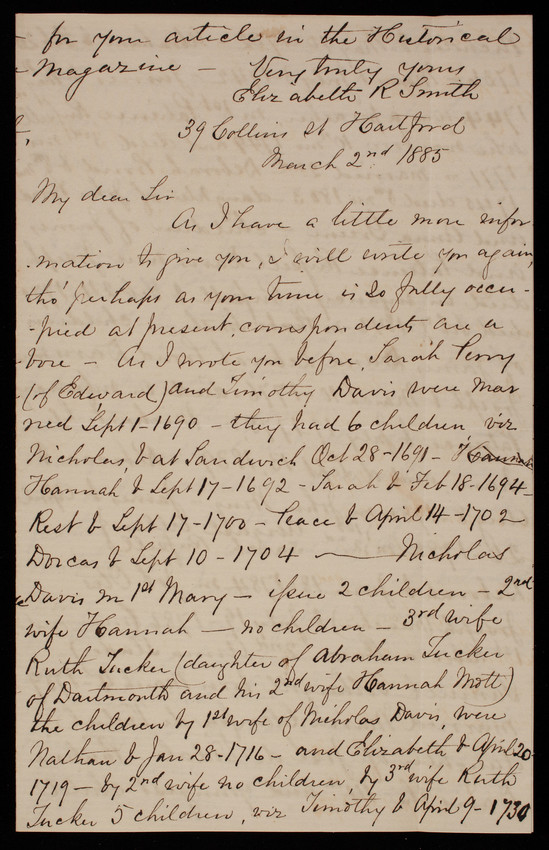 - for your article in the Historical
Magazine - Very truly yours
Elizabeth R Smith
39 Collins St Hartford
March 2nd 1885
My dear Sir
As I have a little more infor-
-mation to give you, I will write you again,
tho' perhaps as your time is so fully occu-
-pied at present, correspondents are a
bore - As I wrote you before, Sarah Perry
(of Edward) and Timothy Davis were mar
ried Sept 1-1690 - they had 6 children viz
Nicholas, b at Sandwich Oct 28-1691- Hannah
Hannah b Sept 17-1692 - Sarah b Feb 18-1694-
Rest b Sept 17-1700 - Peace b April 14-1702
Dorcas b Sept 10-1704 — Nicholas
Davis m 1st Mary - issue 2 children - 2nd
wife Hannah - no children - 3rd wife
Ruth Tucker (daughter of Abraham Tucker
of Dartmouth and his 2nd wife Hannah Mott)
the children by 1st wife of Nicholas Davis, were
Nathan b Jan 28-1716 - and Elizabeth b April 20-
1719 - by 2nd wife no children, by 3rd wife Ruth
Tucker 5 children, viz Timothy b April 9-1730